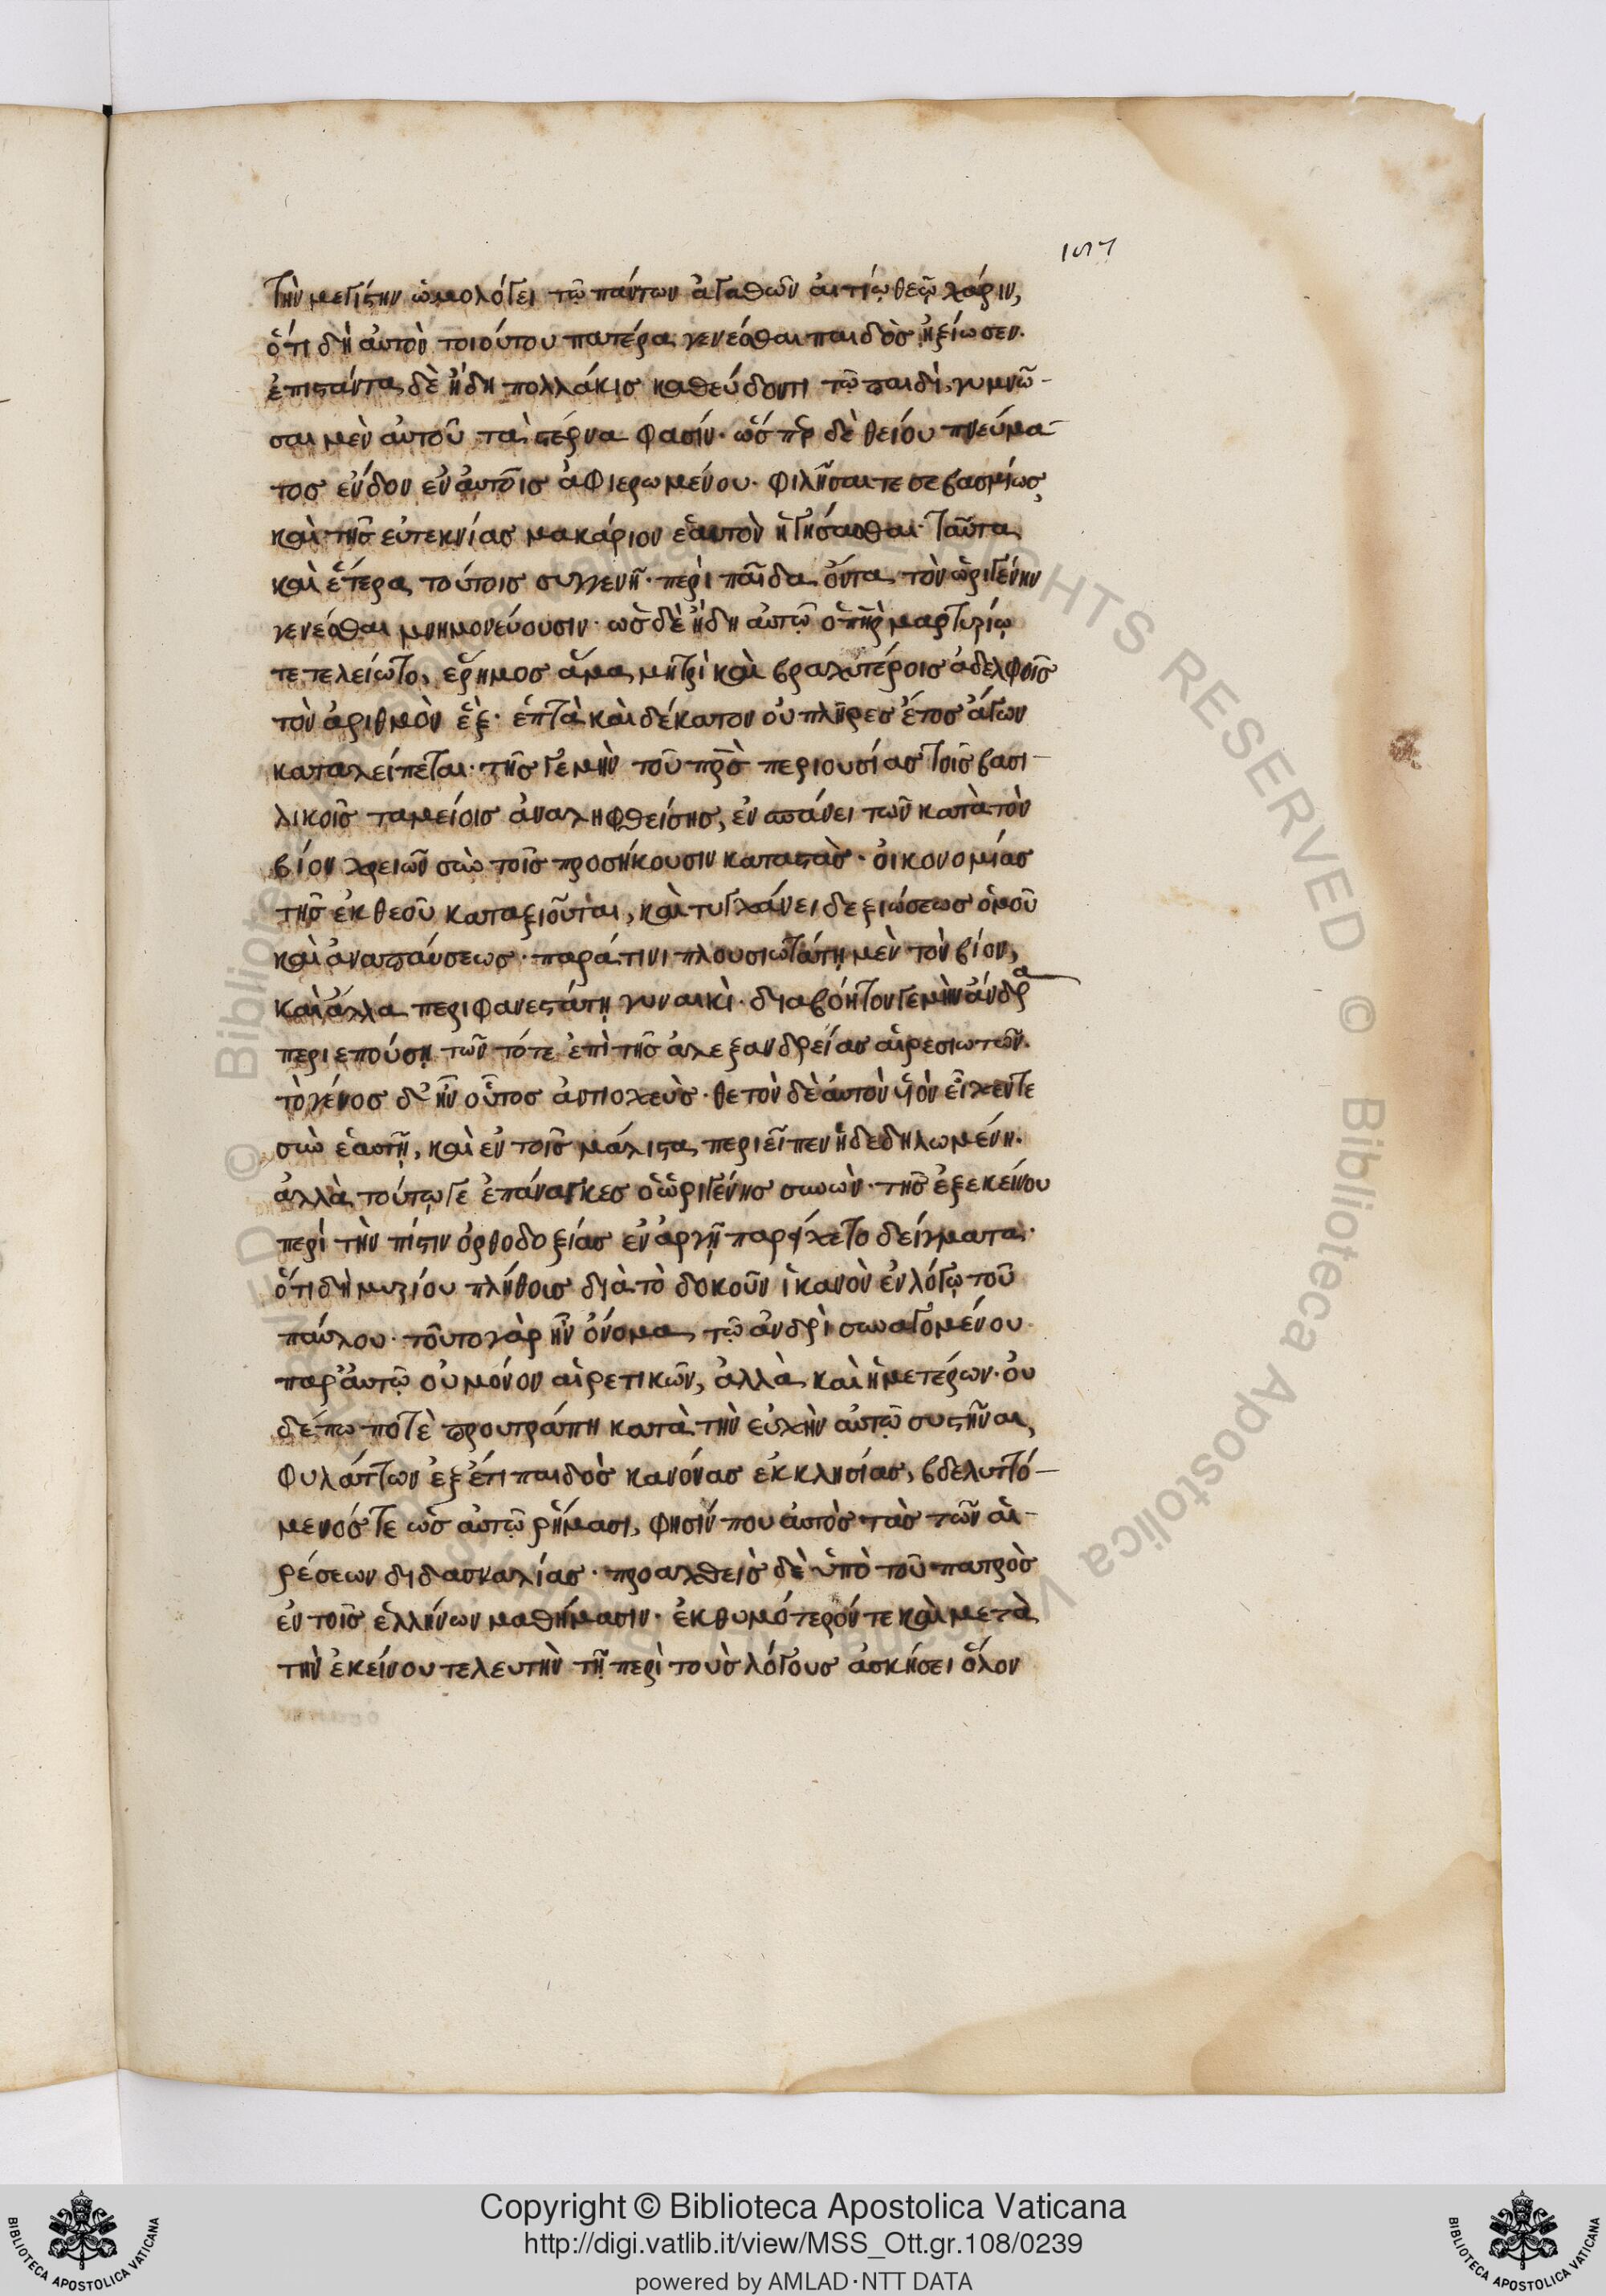 τὴν μεγίστην ὡμολόγει τῷ πάντων ἀγαθῶν αἰτίῳ θεῷ χάριν,
ὅτι δὴ αὐτὸν τοιούτου πατέρα γενέσθαι παιδὸς ἠξίωσεν.
ἐπιστάντα δὲ ἤδη πολλάκις καθεύδοντι τῷ παιδὶ, γυμνῶ-
σαι μὲν αὐτοῦ τὰ στέρνα φασίν· ὥσπερ δὲ θείου πνεύμα-
τος ἔνδον ἐν αὐτοῖς ἀφιερωμένου· φιλῆσαί τε σεβασμίως
καὶ τῆς εὐτεκνίας μακάριον ἑαυτὸν ἡγήσασθαι· ταῦτα
καὶ ἕτερα τούτοις συγγενῆ· περὶ παῖδα ὄντα τὸν ὠριγένην
γενέσθαι μνημονεύουσιν· ὡς δὲ ἤδη αὐτῷ ὁ πὴρ μαρτυρίῳ
τετελείωτο, ἔρημος ἅμα μητρὶ καὶ βραχυτέροις ἀδελφοῖς
τὸν ἀριθμὸν ἓξ· ἑπτὰ καὶ δέκατον οὐ πλῆρες ἔτος ἄγων
καταλείπεται· τῆς γε μὴν τοῦ πρς περιουσίας τοῖς βασι-
λικοῖς ταμείοις ἀναληφθείσης, ἐν σπάνει τῶν κατὰ τὸν
βίον χρειῶν σὺν τοῖς προσήκουσιν καταστὰς· οἰκονομίας
τῆς ἐκ θεοῦ καταξιοῦται, καὶ τυγχάνει δεξιώσεως ὁμοῦ
καὶ ἀναπαύσεως· παρά τινι πλουσιωτάτῃ μὲν τὸν βίον,
καὶ ἄλλα περιφανεστάτῃ γυναικὶ· διαβόητον γε μὴν ἄνδρα
περιεπούσῃ τῶν τότε ἐπὶ τῆς ἀλεξανδρείας αἱρεσιωτῶν.
τὸ γένος δ' ἦν οὗτος ἀντιοχεὺς· θετὸν δὲ αὐτὸν υἱὸν εἶχέν τε
σὺν ἑαυτῇ, καὶ ἐν τοῖς μάλιστα περιεῖπεν ἡ δεδηλωμένη.
ἀλλὰ τούτῳ γε ἐπάναγκες ὁ ὠριγένης συνὼν· τῆς ἐξ ἐκείνου
περὶ τὴν πίστιν ὀρθοδοξίας ἐναργῆ παρείχετο δείγματα·
ὅτι δὴ μυρίου πλήθους διὰ τὸ δοκοῦν ἱκανὸν ἐν λόγῳ τοῦ
παύλου· τοῦτο γὰρ ἦν ὄνομα τῷ ἀνδρὶ συναγομένου
παρ' αὐτῷ οὐ μόνον αἱρετικῶν, ἀλλὰ καὶ ἡμετέρων· οὐ
δέπω ποτὲ προυτράπη κατὰ τὴν εὐχὴν αὐτῷ συστῆναι,
φυλάττων ἐξ ἔτι παιδὸς κανόνας ἐκκλησίας, βδελυττό-
μενός τε ὡς αὐτῷ ῥήμασι, φησίν που αὐτὸς τὰς τῶν αἱ-
ρέσεων διδασκαλίας· προαχθεὶς δὲ ὑπὸ τοῦ πατρὸς
ἐν τοῖς ἑλλήνων μαθήμασιν· ἐκθυμότερόν τε καὶ μετὰ
τὴν ἐκείνου τελευτὴν τῇ περὶ τοὺς λόγους ἀσκήσει ὅλον
Copyright © Biblioteca Apostolica Vaticana
http://digi.vatlib.it/view/MSS_Ott.gr.108/0239
powered by AMLAD·NTT DATA